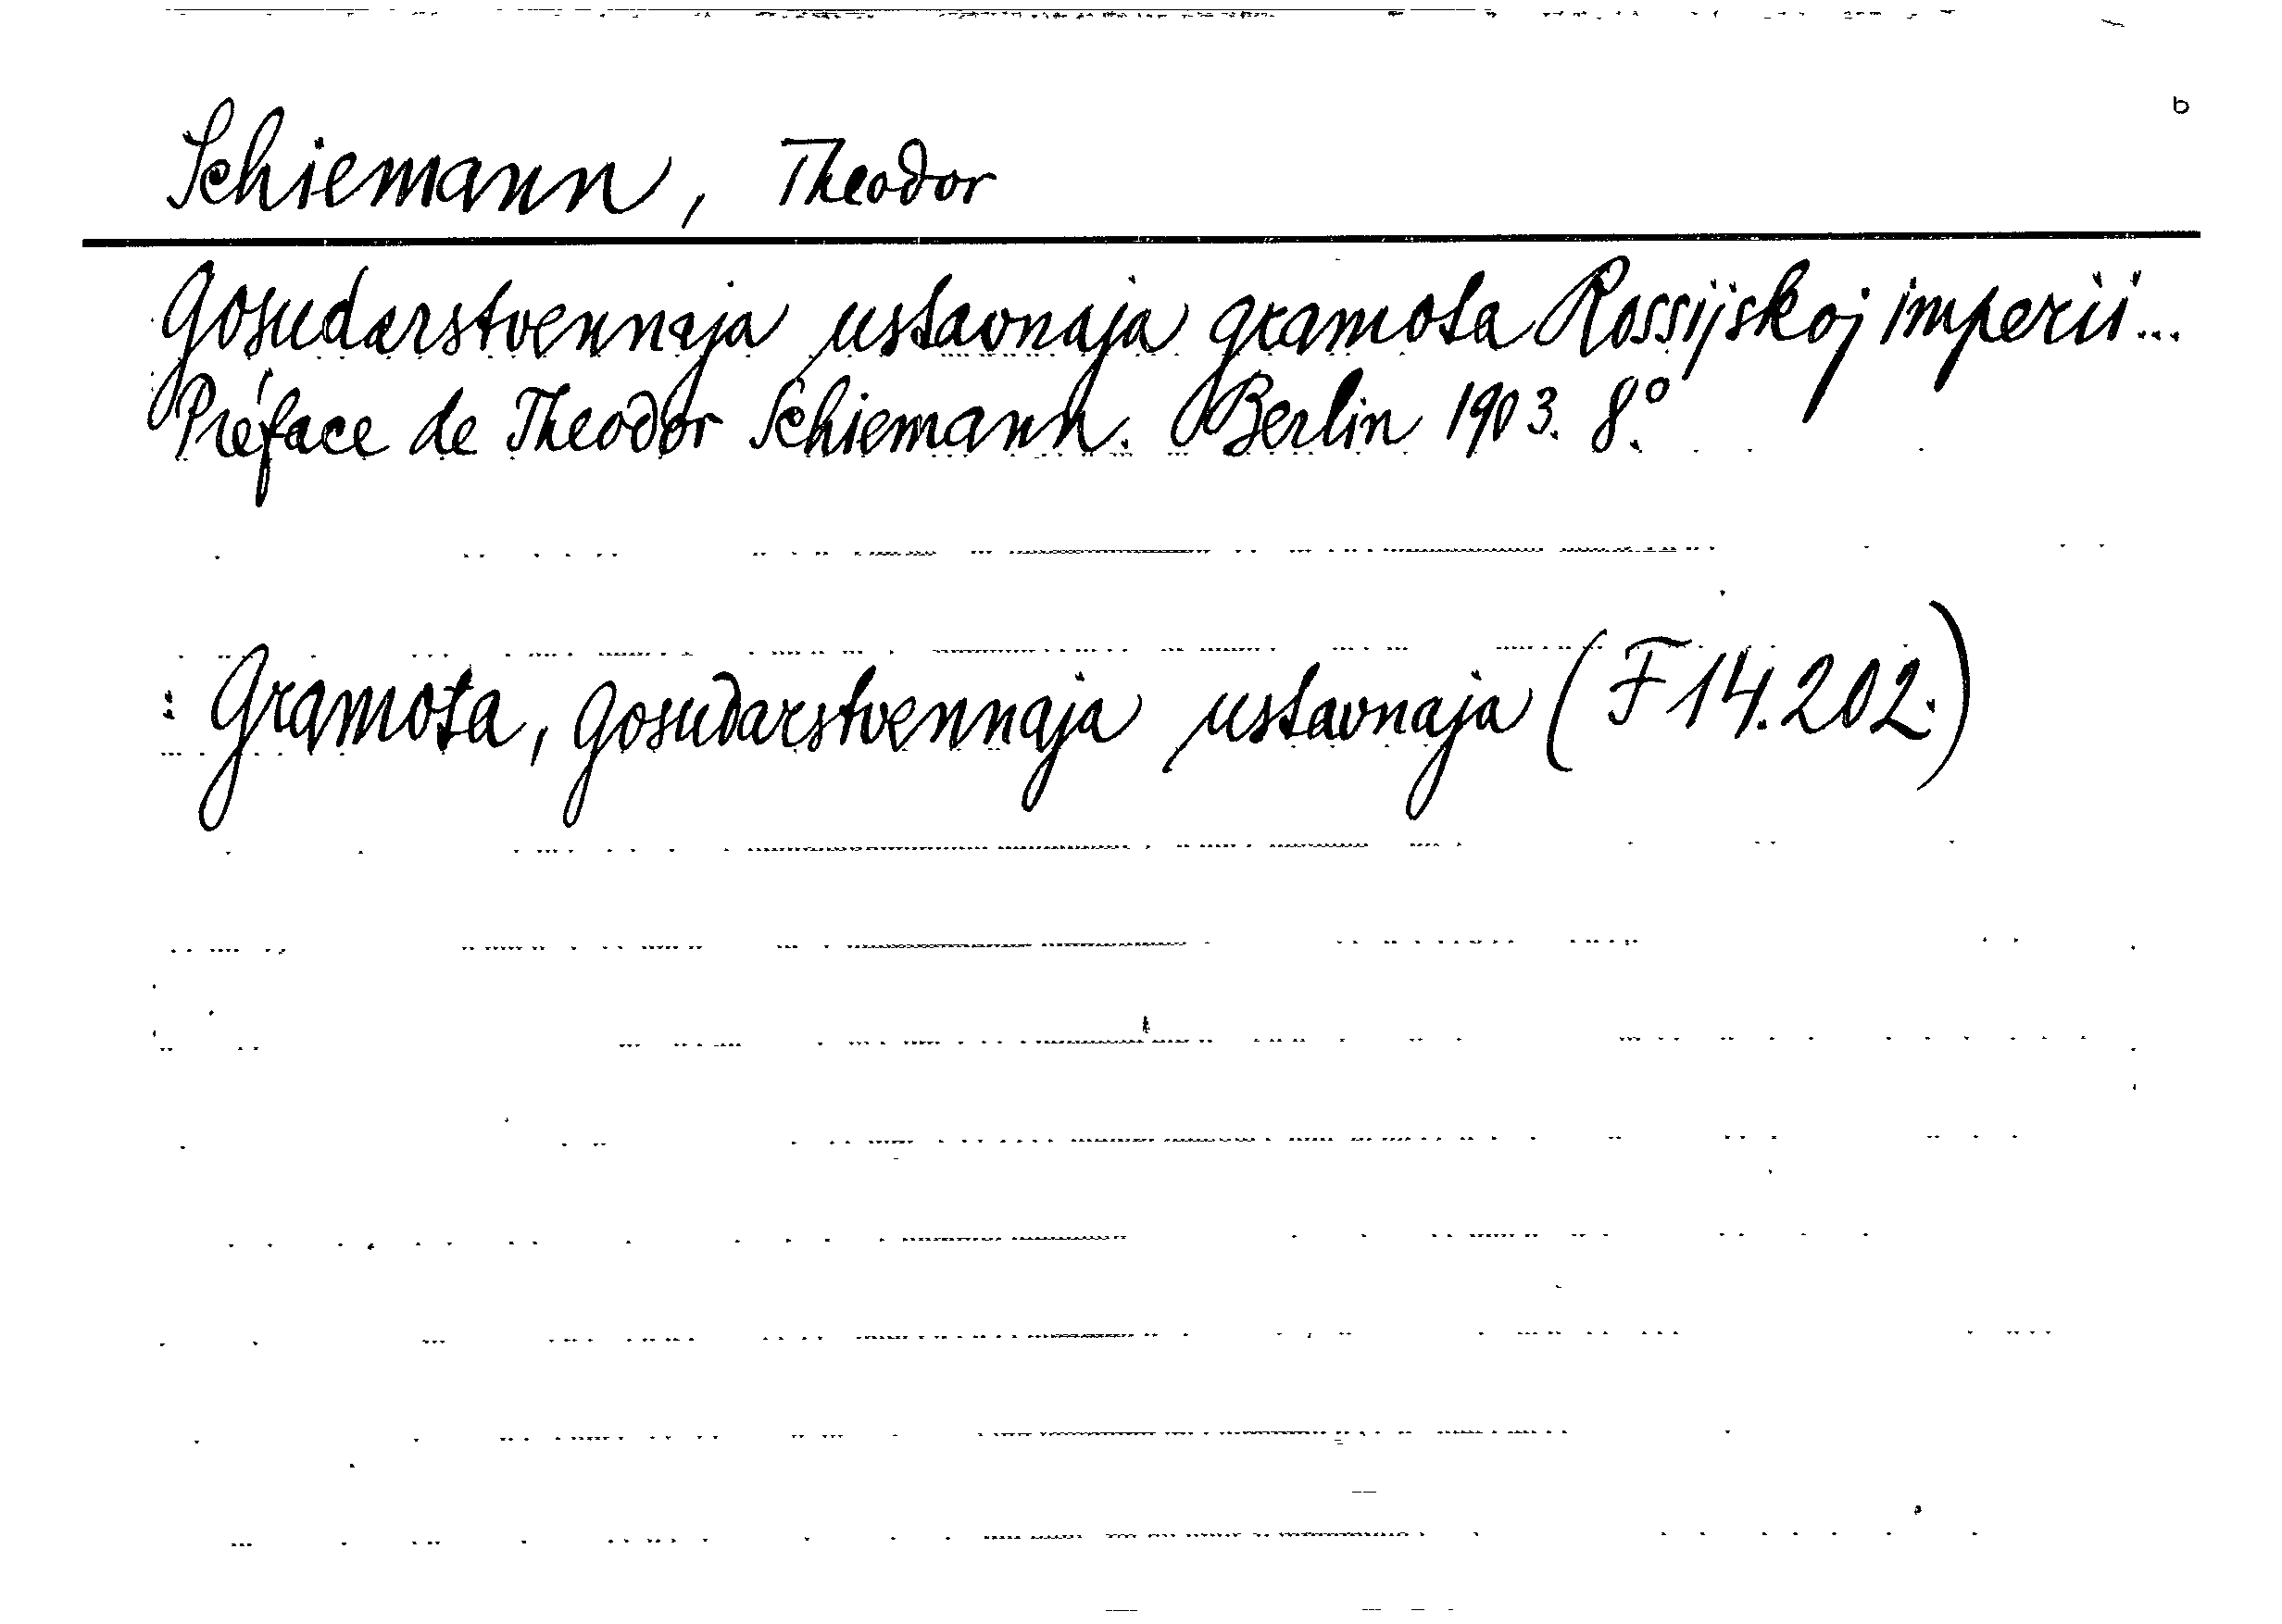 b
Schiemann, Theodor
Gosudarstvennaja ustavnaja gramota Rossijskoj imperii...
Préface de Theodor Schiemann. Berlin 1903. 8°.
: Gramota, Gosudarstvennaja ustavnaja (F 14.202.)